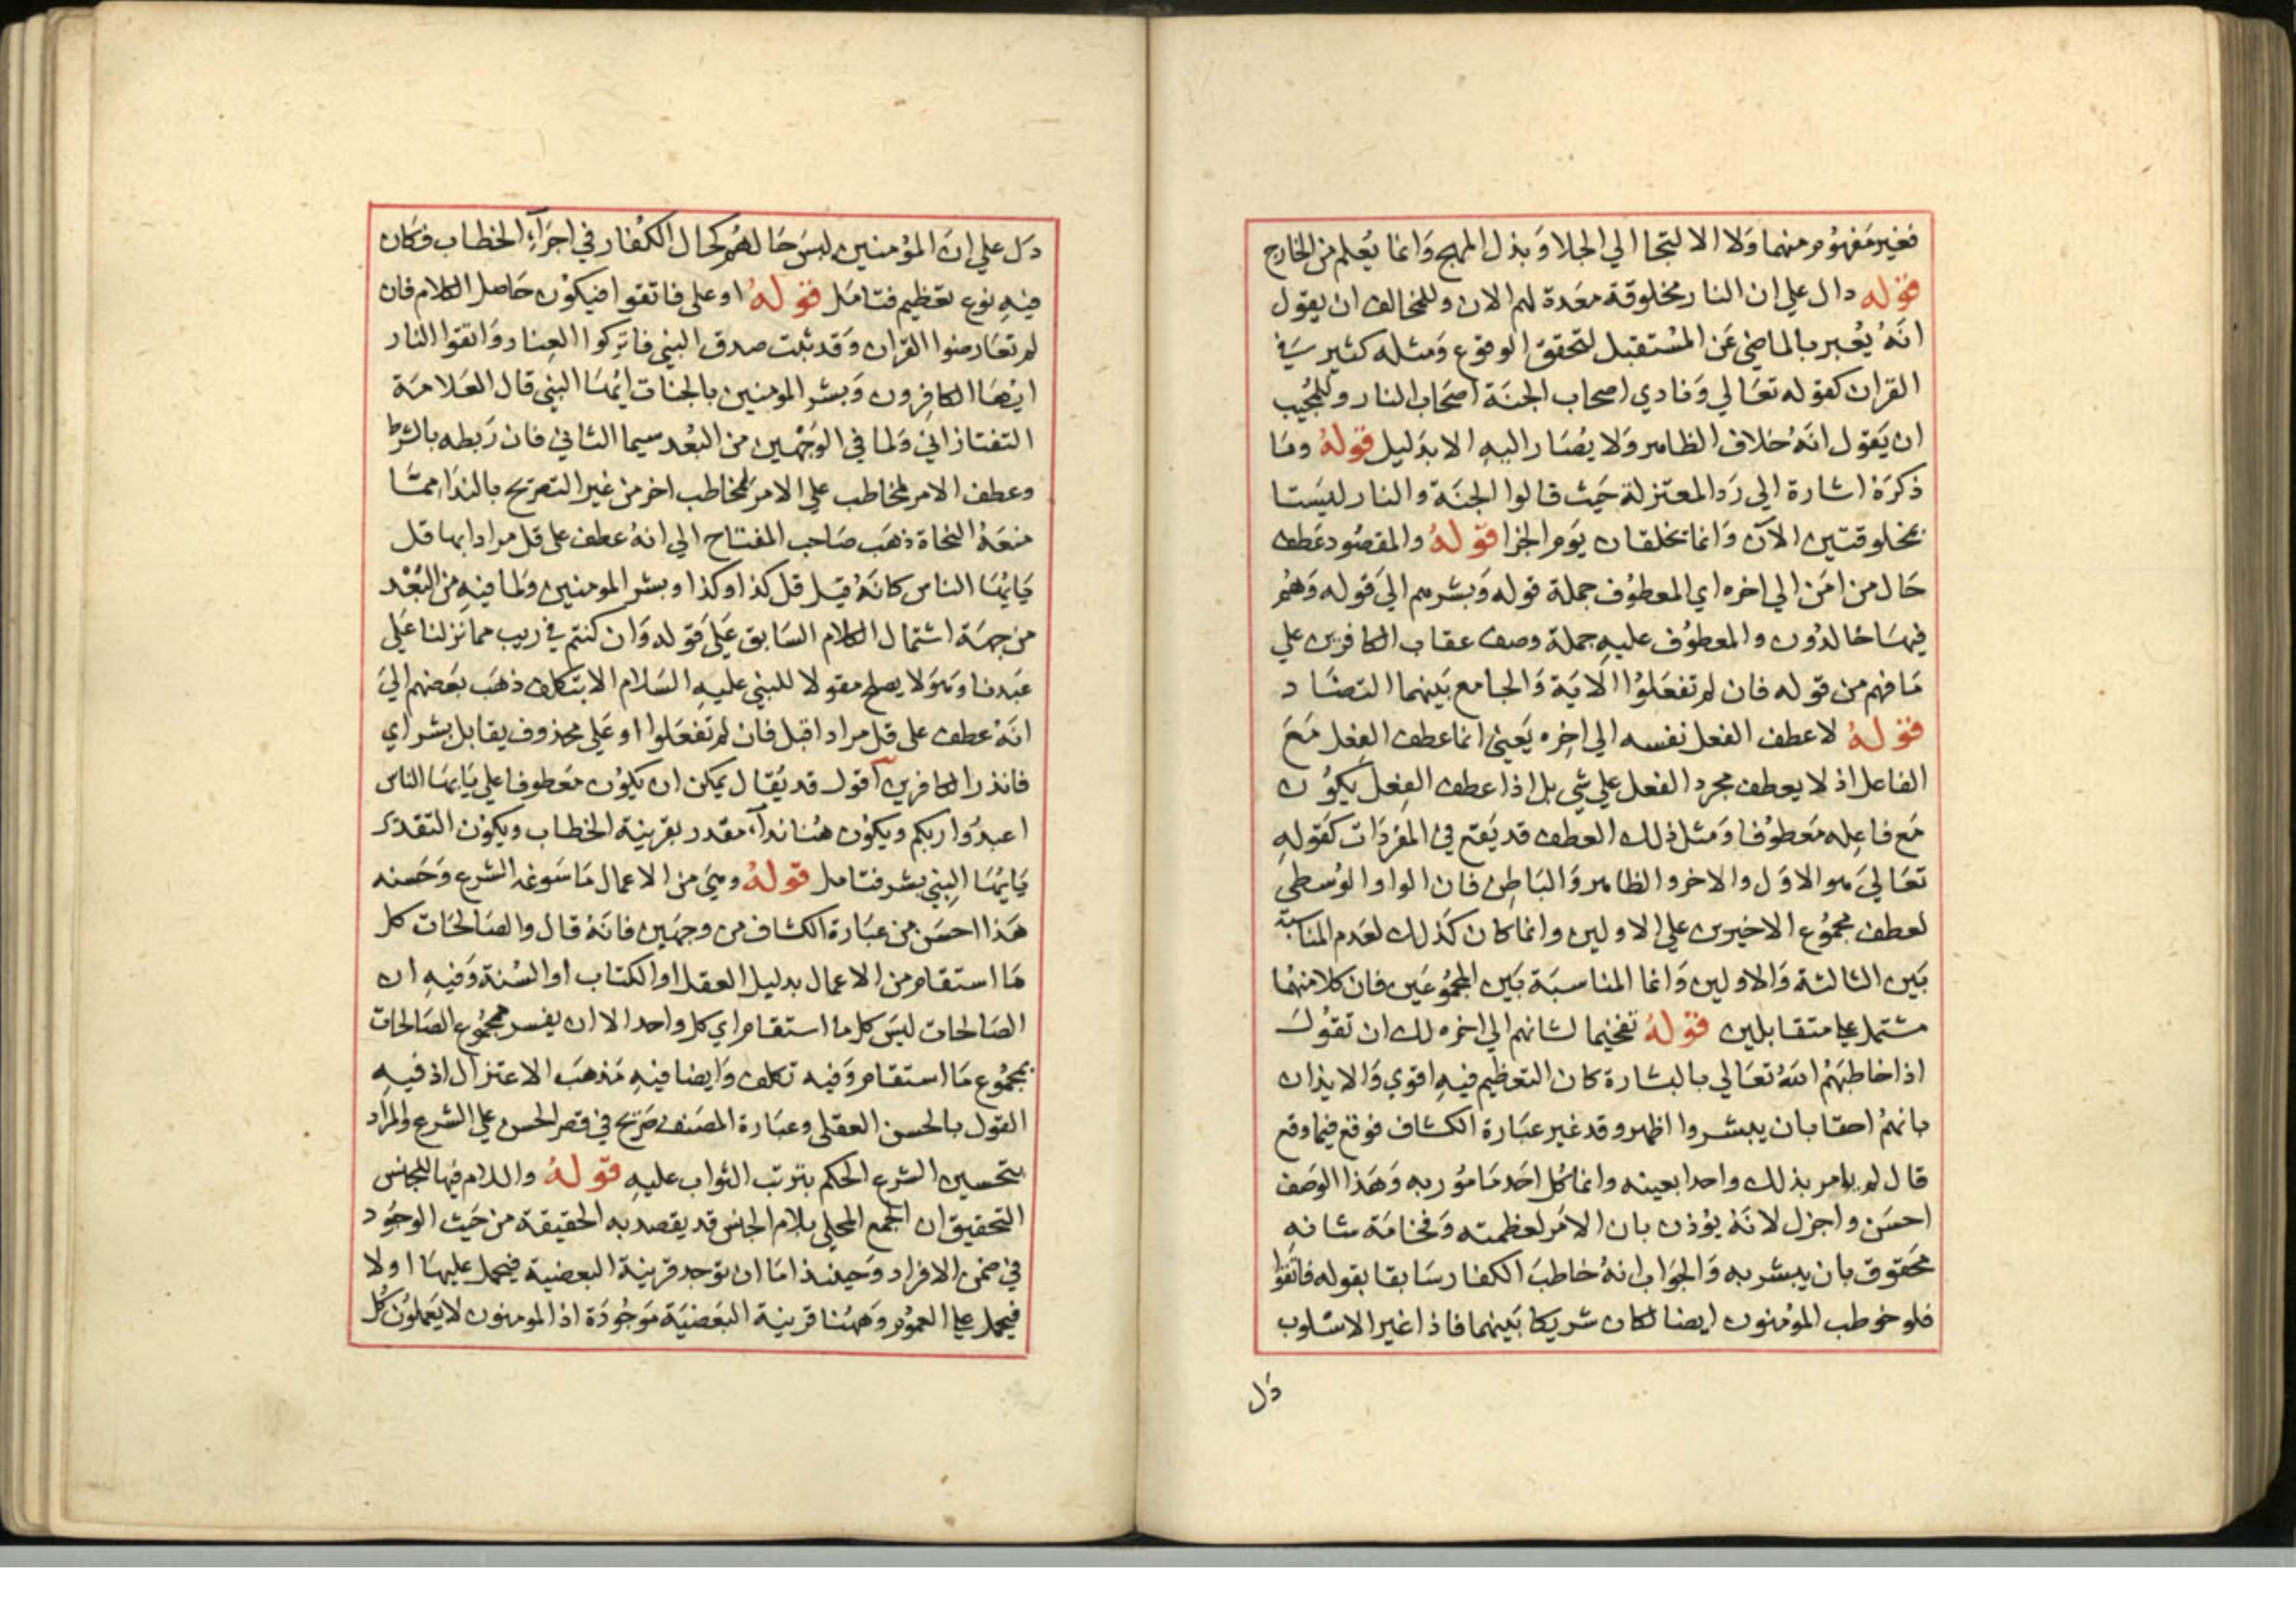 فغير مفهوم منهما ولا الالتجا الي الجلا وبذل المهج وانما يعلم من الخارج
قوله دال علي ان النار مخلوقة معدة لهم الان وللمخالف ان يقول
انه يعبر بالماضي عن المستقبل لتحقق الوقوع ومثله كثير في
القران كقوله تعالي ونادي اصحاب الجنة اصحاب النار وللمجيب
ان يقول انه خلاف الظاهر ولا يصار اليه الا بدليل قوله وما
ذكره اشارة الي رد المعتزلة حيث قالوا الجنة والنار ليستا
بمخلوقتين الآن وانما تخلقان يوم الجزا قوله والمقصود عطف
حال من امن الي اخره اي المعطوف جملة قوله وبشرهم الي قوله وهم
فيها خالدون والمعطوف عليه جملة وصف عقاب الكافرين علي
ما فهم من قوله فان لم تفعلوا الاية والجامع بينهما التضاد
قوله لا عطف الفعل نفسه الي اخره يعني انما عطف الفعل مع
الفاعل اذ لا يعطف مجرد الفعل علي شي بل اذا عطف الفعل يكون
مع فاعله معطوفا ومثل ذلك العطف قد يقع في المفردات كقوله
تعالي هو الاول والاخر والظاهر والباطن فان الواو الوسطي
لعطف مجموع الاخيرين علي الاولين وانما كان كذلك لعدم المناسبة
بين الثالثة والاولين وانما المناسبة بين المجموعين فان كلا منهما
مشتمل علي متقابلين قوله تفخيما لشانهم الي اخره لك ان تقول
اذا خاطبهم الله تعالي بالبشارة كان التعظيم فيه اقوي والايذان
بانهم احقا بان يبشروا اظهر وقد غير عبارة الكشاف فوقع فيما وقع
قال لم يامر بذلك واحدا بعينه وانما كل احد مامور به وهذا الوصف
احسن واجزل لانه يؤذن بان الامر لعظمته وفخامة شانه
محقوق بان يبشر به والجواب انه خاطب الكفار سابقا بقوله فاتقوا
فلو خوطب المؤمنون ايضا لكان شريكا بينهما فاذا غير الاسلوب
دل
دل علي ان المؤمنين ليس حالهم كحال الكفار في اجراء الخطاب فكان
فيه نوع تعظيم فتامل قوله او على فاتقوا فيكون حاصل الكلام فان
لم تعارضوا القران وقد ثبت صدق النبي فاتركوا العناد واتقوا النار
ايها الكافرون وبشر المومنين بالجنات ايها النبي قال العلامة
التفتازاني ولما في الوجهين من البعد سيما الثاني فان ربطه بالشرط
وعطف الامر لمخاطب علي الامر لمخاطب اخر من غير التصريح بالنداء مما
منعه النحاة ذهب صاحب المفتاح الي انه عطف على قل مرادا بها قل
يايها الناس كانه قيل قل كذا وكذا وبشر المومنين ولما فيه من البعد
من جهة اشتمال الكلام السابق علي قوله وان كنتم في ريب مما نزلنا علي
عبدنا وهو لا يصلح مقولا للنبي عليه السلام الا بتكلف ذهب بعضهم الي
انه عطف على قل مرادا قبل فان لم تفعلوا او علي محذوف يقابل بشر اي
فانذر الكافرين اقول قد يقال يمكن ان يكون معطوفا علي يايها الناس
اعبدوا ربكم ويكون هنا نداء مقدر بقرينة الخطاب ويكون التقدير
يايها النبي بشر فتامل قوله وهي من الاعمال ما سوغه الشرع وحسنه
هذا احسن من عبارة الكشاف من وجهين فانه قال والصالحات كل
ما استقام من الاعمال بدليل العقل او الكتاب او السنة وفيه ان
الصالحات ليس كل ما استقام اي كل واحد الا ان يفسر مجموع الصالحات
بمجموع ما استقام وفيه تكلف وايضا فيه مذهب الاعتزال اذ فيه
القول بالحسن العقلي وعبارة المصنف صريح في قصر الحسن علي الشرع والمراد
بتحسين الشرع الحكم بترتب الثواب عليه قوله واللام فيها للجنس
التحقيق ان الجمع المحلي بلام الجنس قد يقصد به الحقيقة من حيث الوجود
في ضمن الافراد وحينئذ اما ان توجد قرينة البعضية فيحمل عليها اولا
فيحمل علي العموم وههنا قرينة البعضية موجودة اذ المومنون لا يعملون كل